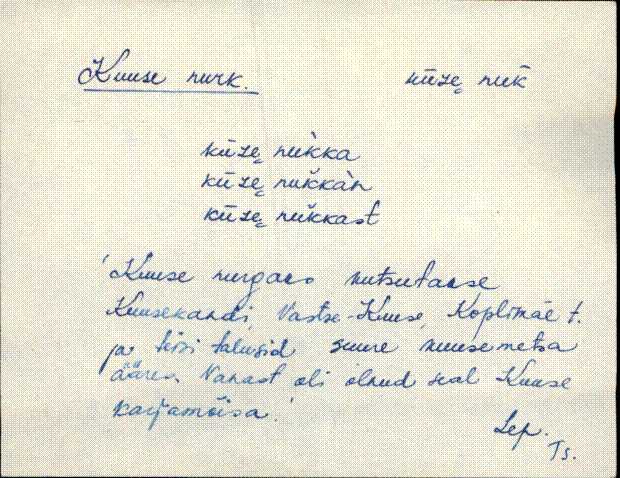 Kuuse nurk. kūzę nuk̆
kūzę nuk̀ka
kūzę nuk̆kàn
kūzę nuk̆kast
'Kuuse nurgas kutsutakse
Kuusekandi, Vastse-Kuuse, Koplimäe t.
ja teisi talusid suure kuusemetsa
ääres. Vanast oli olnud seal Kuuse
karjamõisa.'
Lep.
Ts.